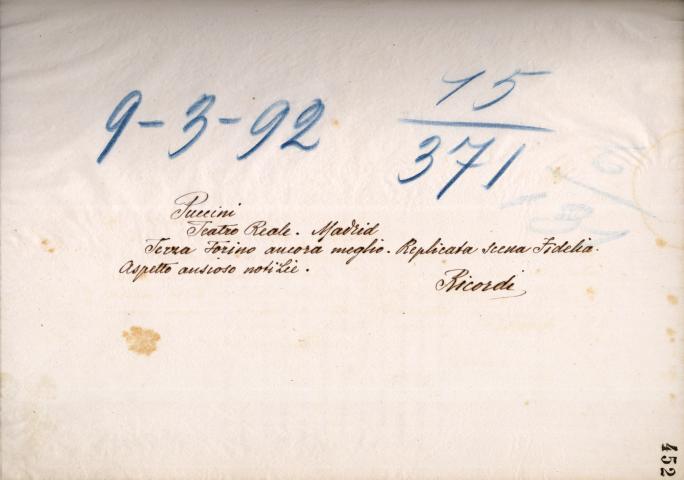 9-3-92
15
371
Puccini
Teatro Reale. Madrid
Terza Torino ancora meglio. Replicata scena Fidelia.
Aspetto ansioso notizie.
Ricordi
452